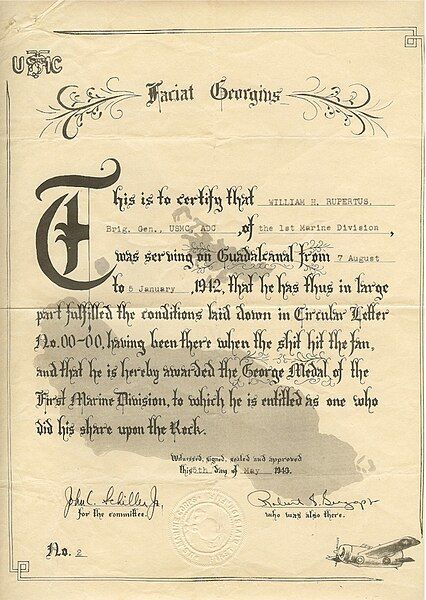 USMC
Faciat Georgius
This is to certify that WILLIAM H. RUPERTUS,
Brig. Gen., USMC, ADC , of the 1st Marine Division ,
was serving on Guadalcanal from 7 August
to 5 January , 1942, that he has thus in large
part fulfilled the conditions laid down in Circular Letter
No. 00-00, having been there when the shit hit the fan,
and that he is hereby awarded the George Medal of the
First Marine Division, to which he is entitled as one who
did his share upon the Rock.
Witnessed, signed, sealed and approved
this 5th day of May 1943.
John C. Schiller Jr,
for the committee.
Robert
who was also there.
No. 2